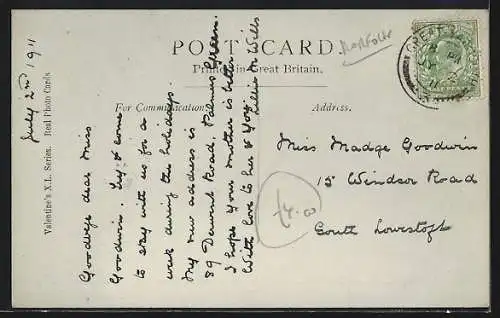 POST CARD.
Printed in Great Britain.
For Communication.
Address.
Valentine's X.L. Series.   Real Photo Cards
Norfolk
July 2nd 1911
Goodbye dear Miss
Goodwin. Try & come
to stay with us for a
week during the holidays.
My new address is
89 Derwent Road, Palmers Green.
I hope your mother is better
With love to her & you.
Lillie M. Wills
Miss Madge Goodwin
15 Windsor Road
South Lowestoft
£4.00